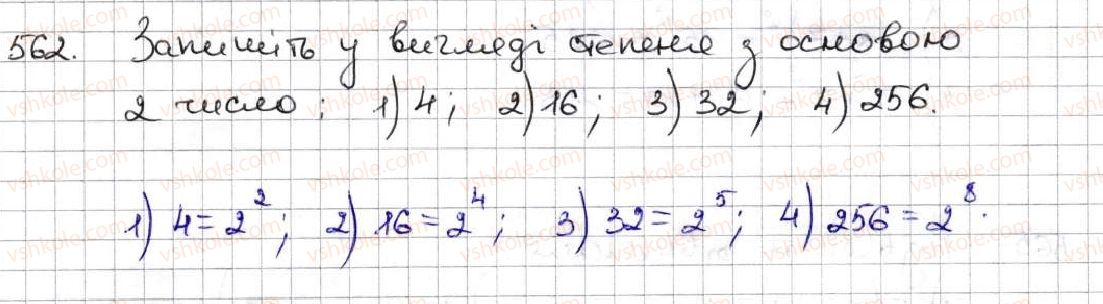 562. Запишіть у вигляді степеня з основою
2 число: 1) 4; 2) 16; 3) 32; 4) 256.
1) 4 = 2²; 2) 16 = 2⁴; 3) 32 = 2⁵; 4) 256 = 2⁸.